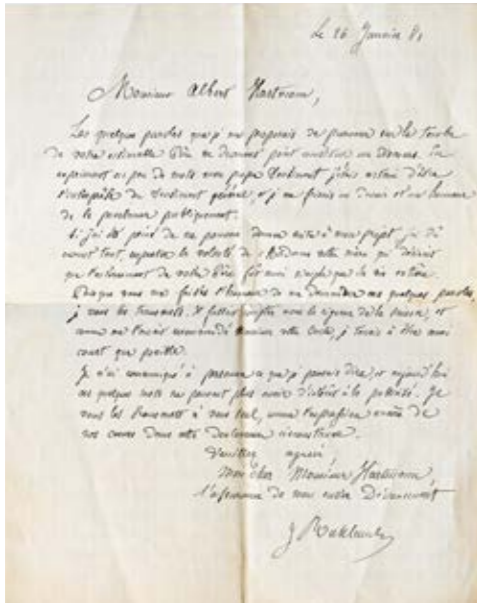 Le 26 Janvier 81
Monsieur Albert Hartmann,
Les quelques paroles que je me proposais de prononcer sur la tombe
de votre estimable Père ne devaient point constituer un discours. En
exprimant en peu de mots mon propre sentiment j'étais certain d'être
l'interprête du sentiment général, et je me faisais un devoir et un honneur
de le proclamer publiquement.
Si j'ai été peiné de ne pouvoir donner suite à mon projet, j'ai dû
avant tout, respecter la volonté de Madame votre mère qui désirait
que l'enterrement de votre Père fut aussi simple que la vie
Puisque vous me faites l'honneur de me demander ces quelques paroles,
je vous les transmets. Il fallait compter avec la rigueur de la saison, et
comme me l'avait recommandé Monsieur votre Oncle, je tenais à être aussi
court que possible.
Je n'ai communiqué à personne ce que je pensais dire, et aujourd'hui
ces quelques mots ne peuvent plus avoir d'intérêt à la publicité. Je
vous les transmets à vous seul, comme l'expression de
nos cœurs dans cette douloureuse circonstance.
Veuillez agréer,
Mon cher Monsieur Hartmann,
l'assurance de mon entier Dévouement